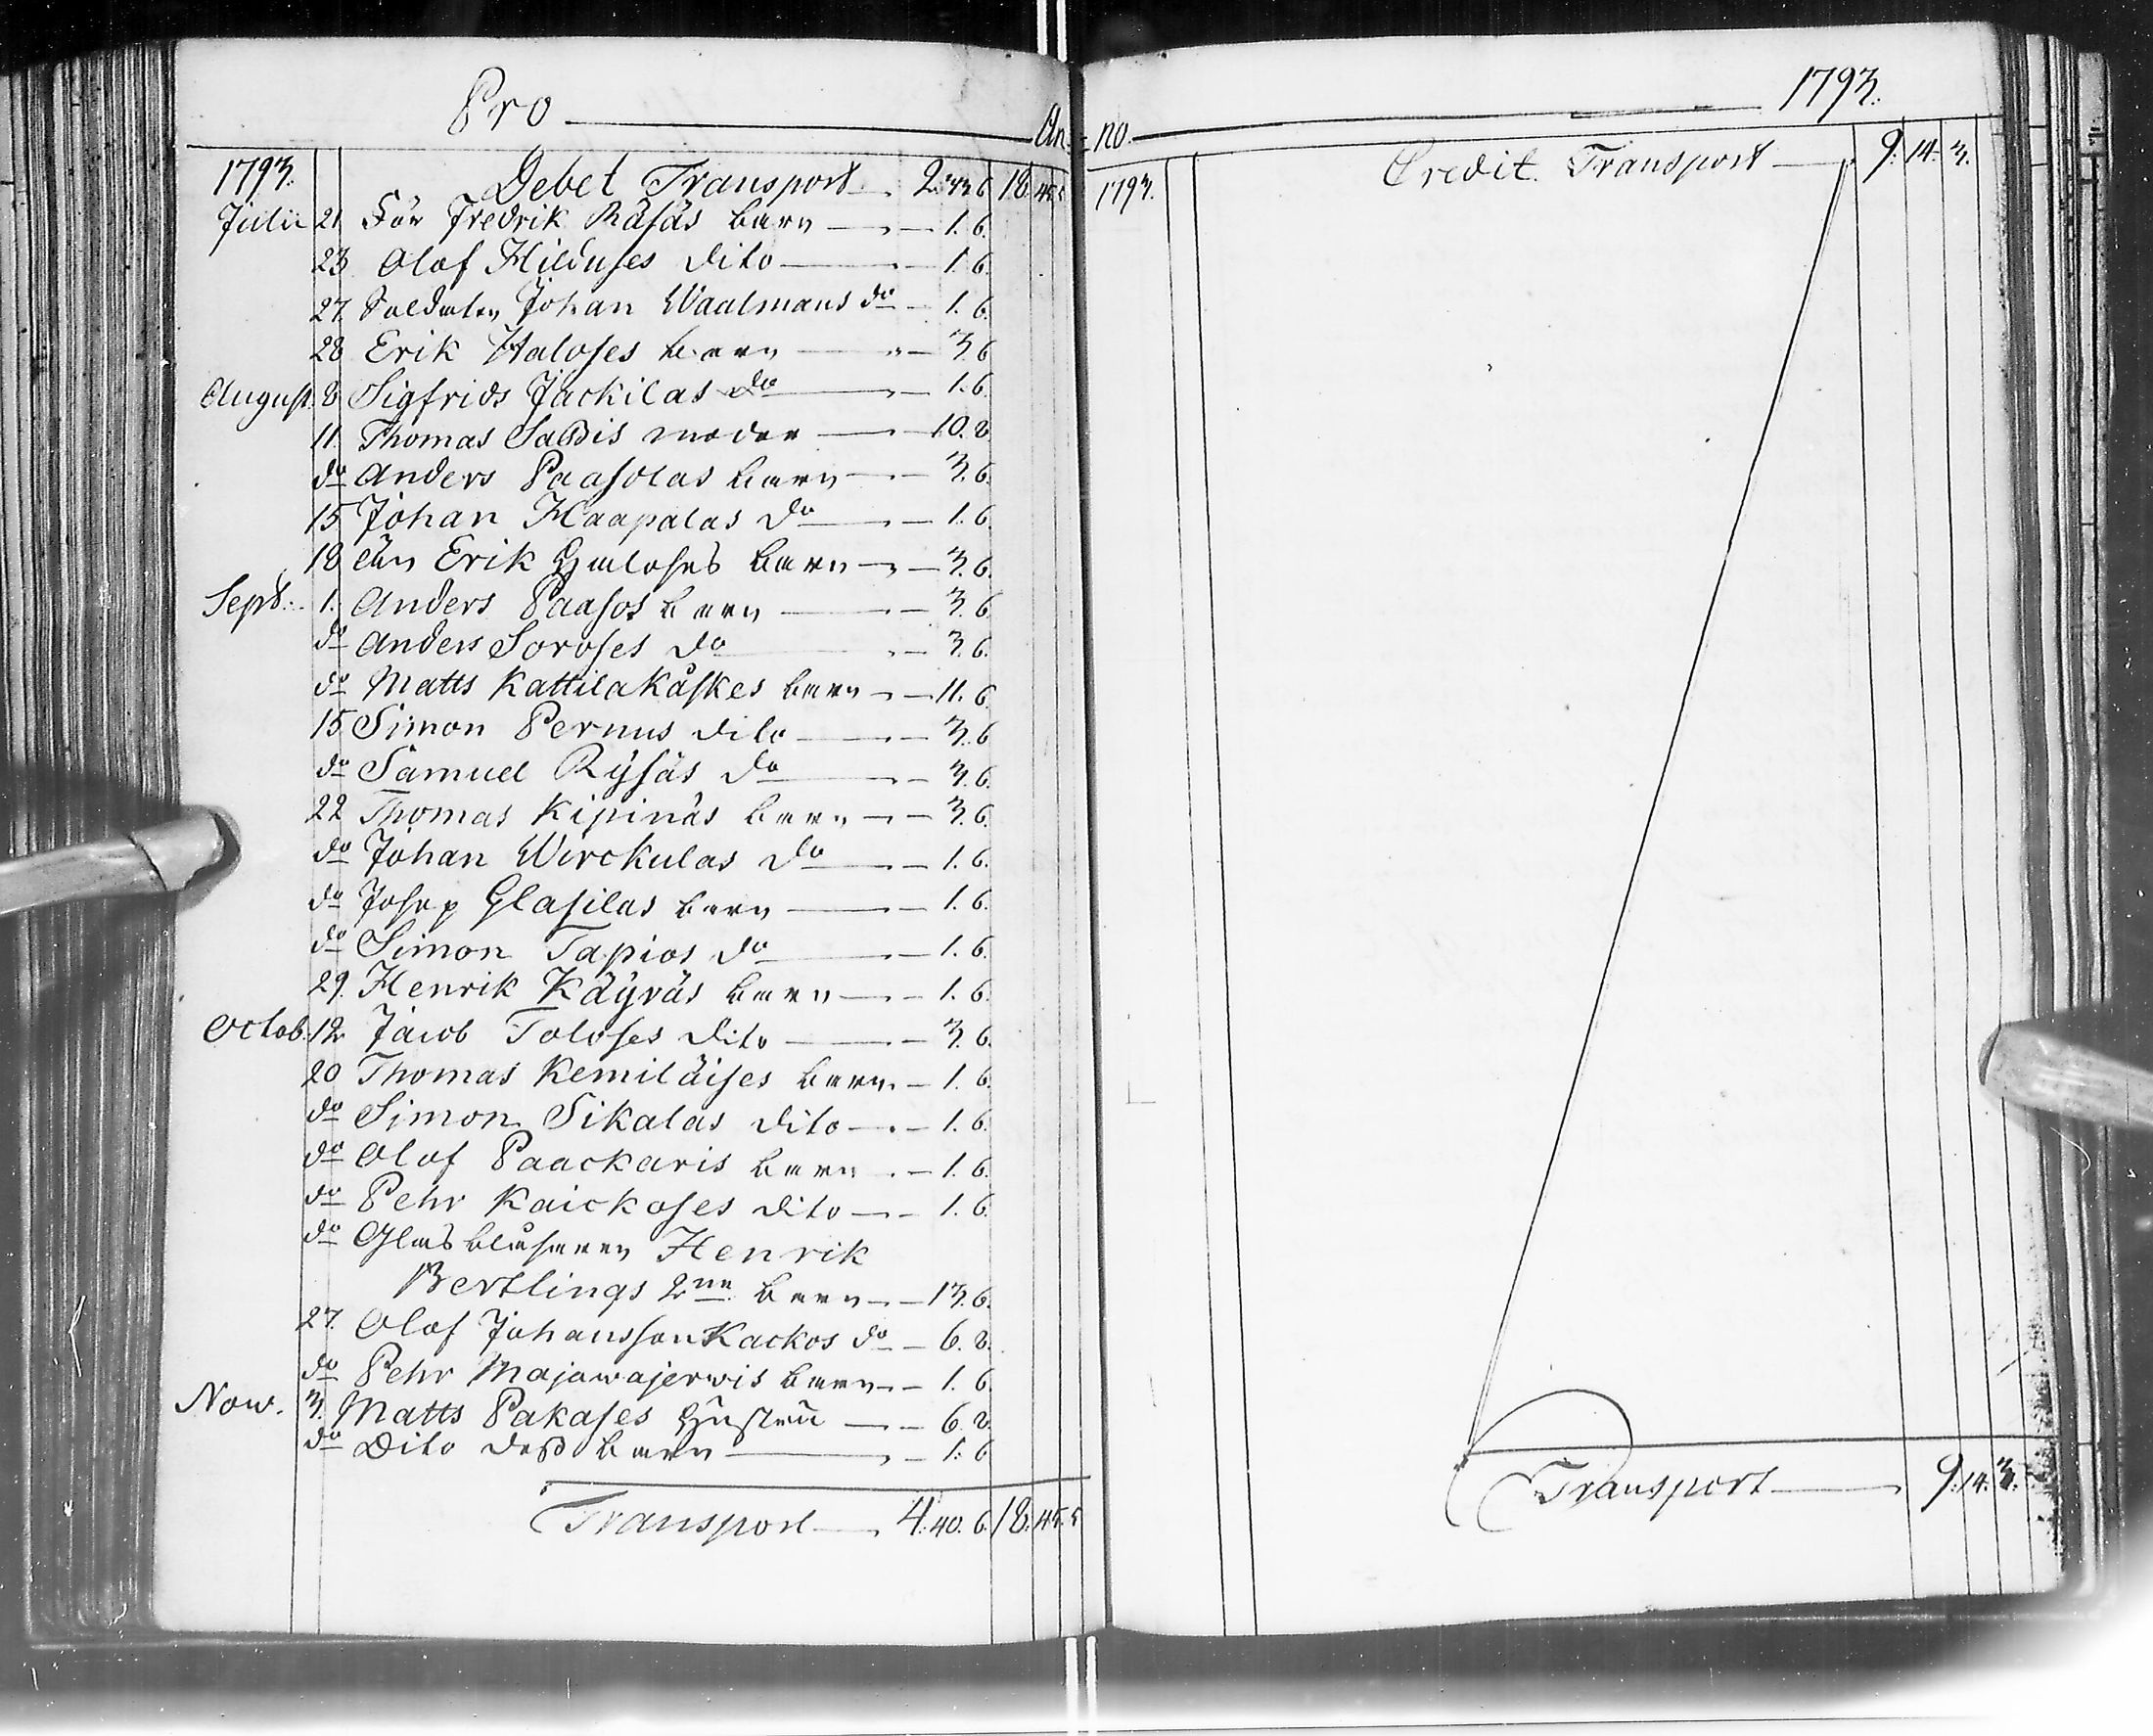 Pro An-
1793. Debet Transport 2. 33. 6 18. 45. 5
Julii 21 För Fredrik Räsäs barn 1. 6.
23 Olof Hilduses dito 1. 6.
27. Soldaten Johan Waalmans do 1. 6.
28 Erik Haloses barn 3. 6
August. 8 Sigfrids Jackilas do 1. 6.
11. Thomas Saldis moder 10. 8
do Anders Paasolas barn 3. 6.
15 Johan Haapalas do 1. 6.
18 Erik Haloses barn 3. 6.
Sept. 1. Anders Paasos barn 3. 6.
do Anders Soroses do 3. 6.
do Matts Kattilakåskes barn 11. 6.
15 Simon Pernus dito 3. 6
do Samuel Rysäs do 3. 6.
22 Thomas Kipinäs barn 3. 6.
do Johan Wirckulas do 1. 6.
do Josep Glasilas barn 1. 6.
do Simon Tapios do 1. 6.
29. Henrik Käyräs barn 1. 6.
Octob. 12 Jacob Toloses dito 3. 6.
20 Thomas Kemiläises barn 1. 6.
do Simon Sikalas dito 1. 6.
do Olof Paackaris barn 1. 6.
do Pehr Kaickoses dito 1. 6.
do Glasblåsaren Henrik
Bertlings 2ne barn 13. 6.
27. Olof Johansson Kackos do 6. 8.
do Pehr Majawajerwis barn 1. 6
Now. 3. Matts Pakases Hustru 6. 8
do Dito dess barn 1. 6
Transport 4. 40. 6. 18. 45. 5
no. 1793.
1793. Credit Transport 9. 14. 3.
Transport 9. 14. 3.